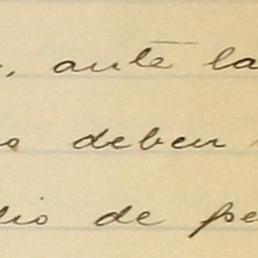 , ante la
o deben
dio de pe